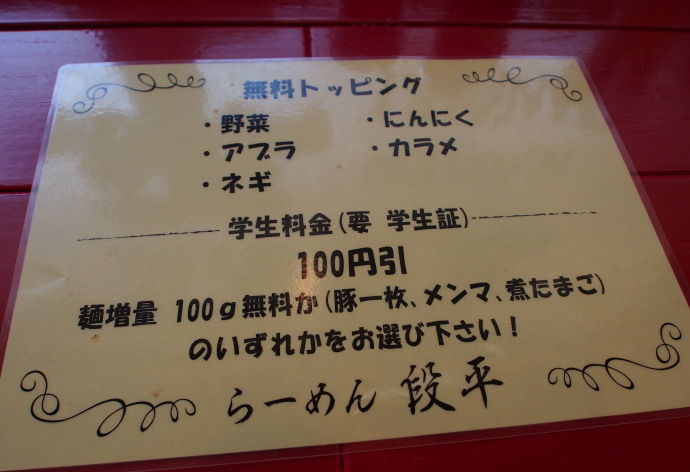 無料トッピング
・野菜 ・にんにく
・アブラ ・カラメ
・ネギ
学生料金(要 学生証)
100円引
麺増量 100g無料か(豚一枚、メンマ、煮たまご)
のいずれかをお選び下さい！
らーめん 段平